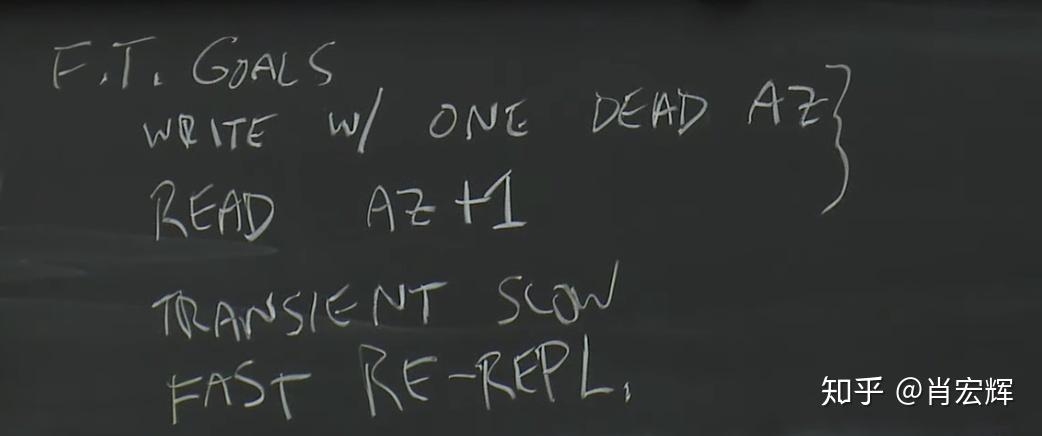 F.T. GOALS
WRITE W/ ONE DEAD AZ}
READ AZ+1
TRANSIENT SLOW
FAST RE-REPL.
知乎 @肖宏辉